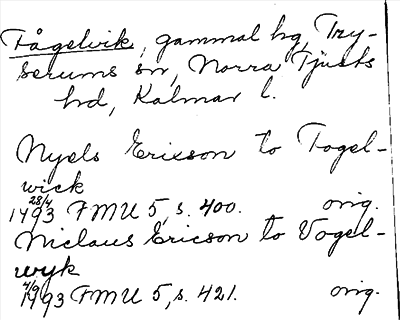 Fågelvik, gammal hg, Try-
serums sn, Norra Tjusts
hd, Kalmar l.
Nyels Ericson to Fogel-
wick
28/4
1493 FMU 5, s. 400. orig.
Niclaus Ericson to Vogel-
wyk
4/9
1493 FMU 5, s. 421. orig.